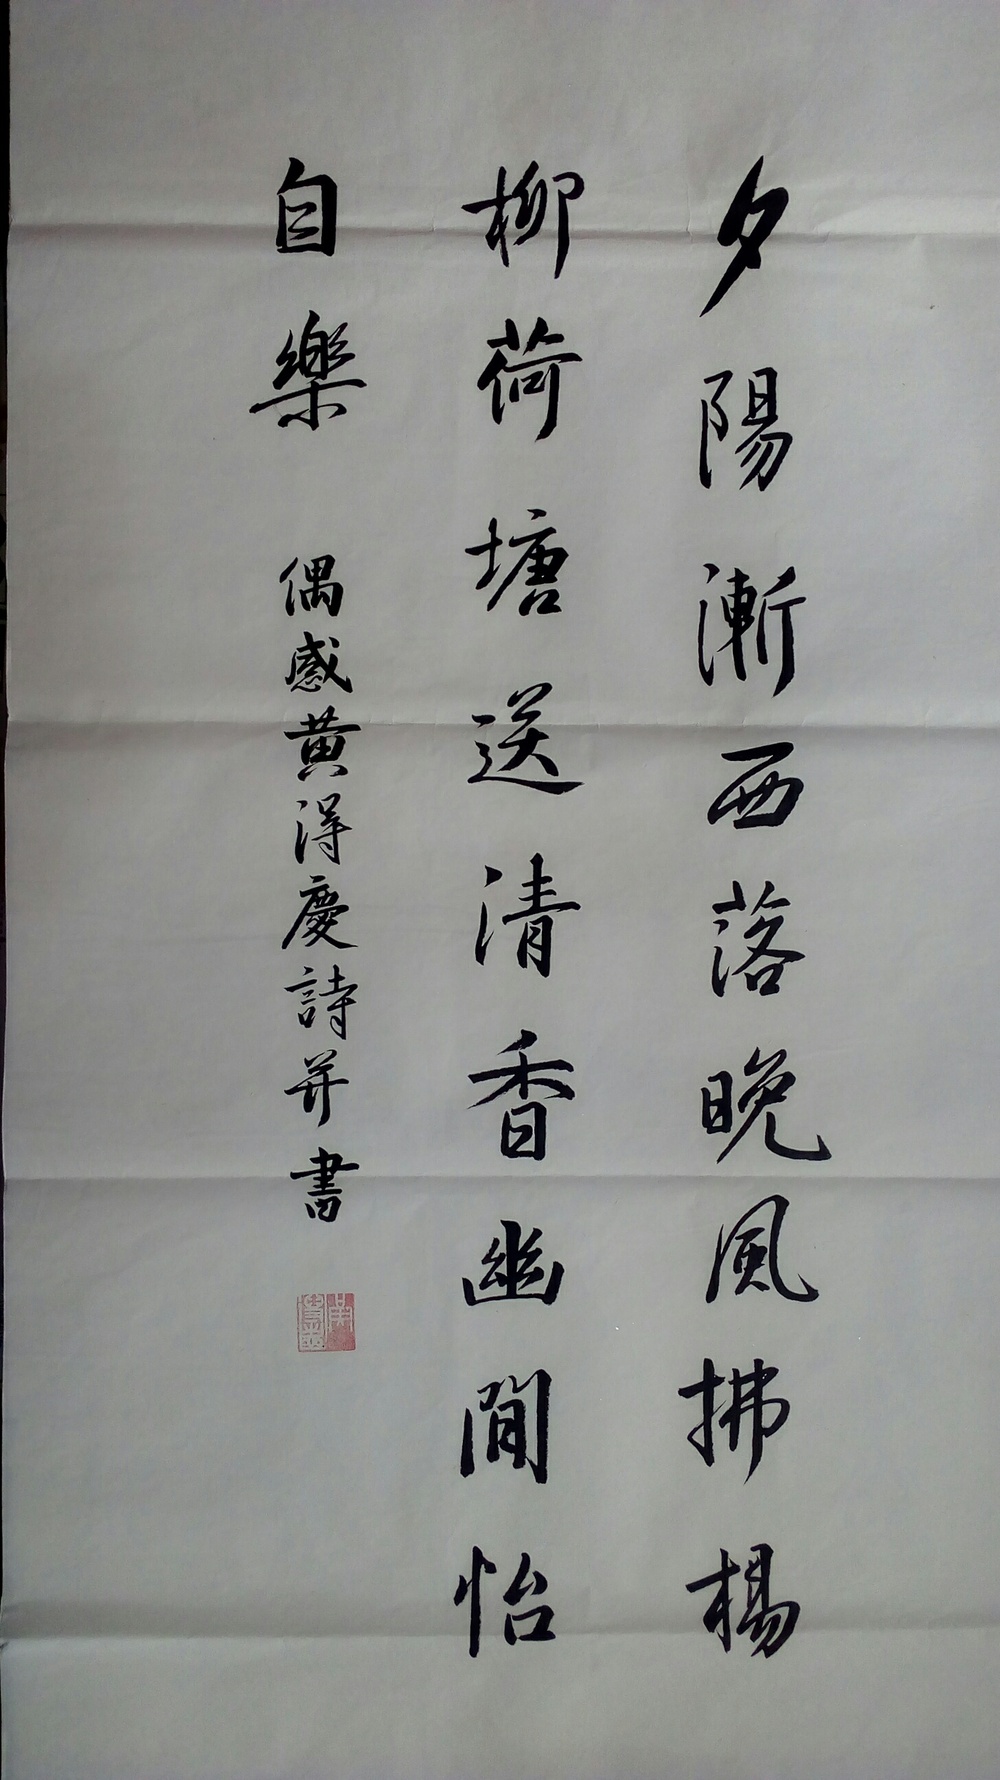 夕陽漸西落晚風拂楊
柳荷塘送清香幽閒怡
自樂
偶感黄得慶詩并書